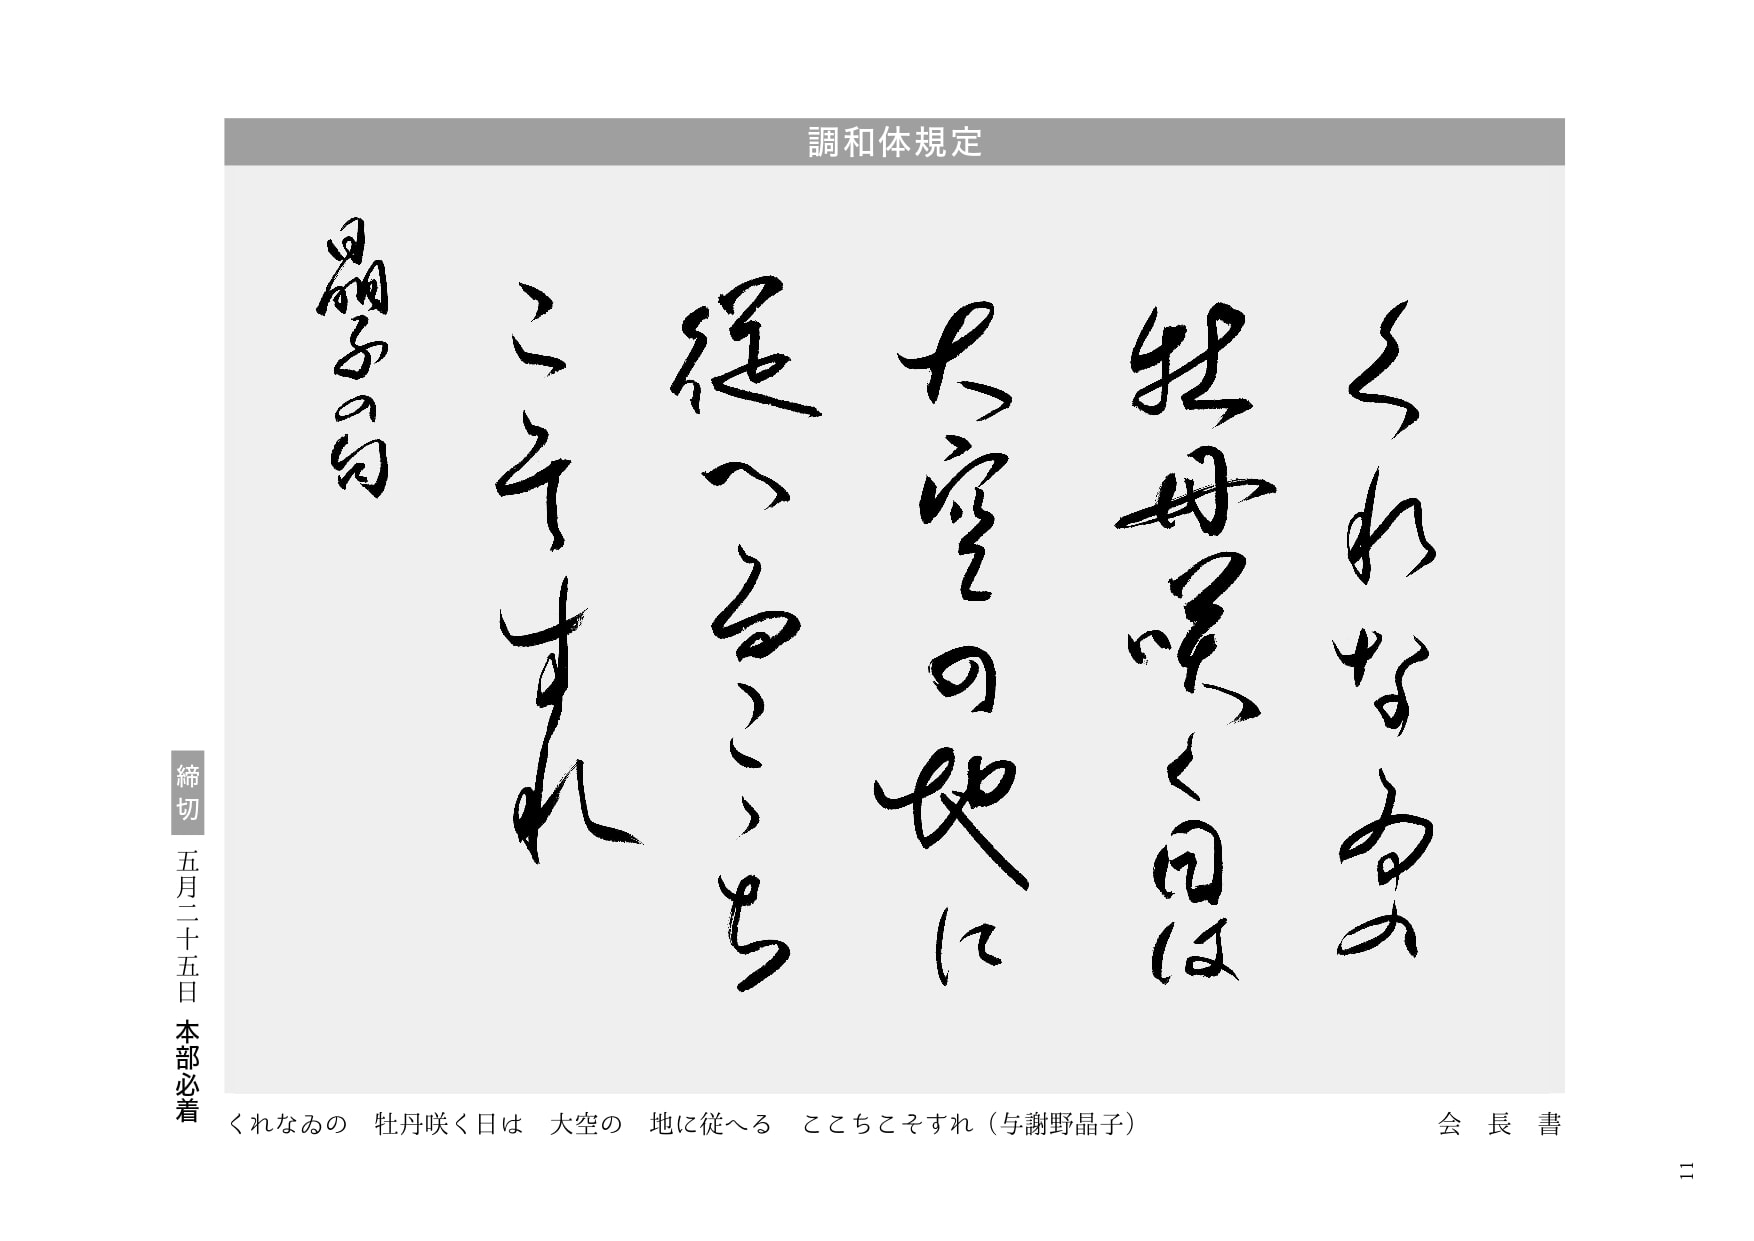 調和体規定
くれなゐの
牡丹咲く日は
大空の地に
従へるこゝち
こそすれ
晶子の句
締切 五月二十五日 本部必着
くれなゐの　牡丹咲く日は　大空の　地に従へる　ここちこそすれ（与謝野晶子）
会長書
11